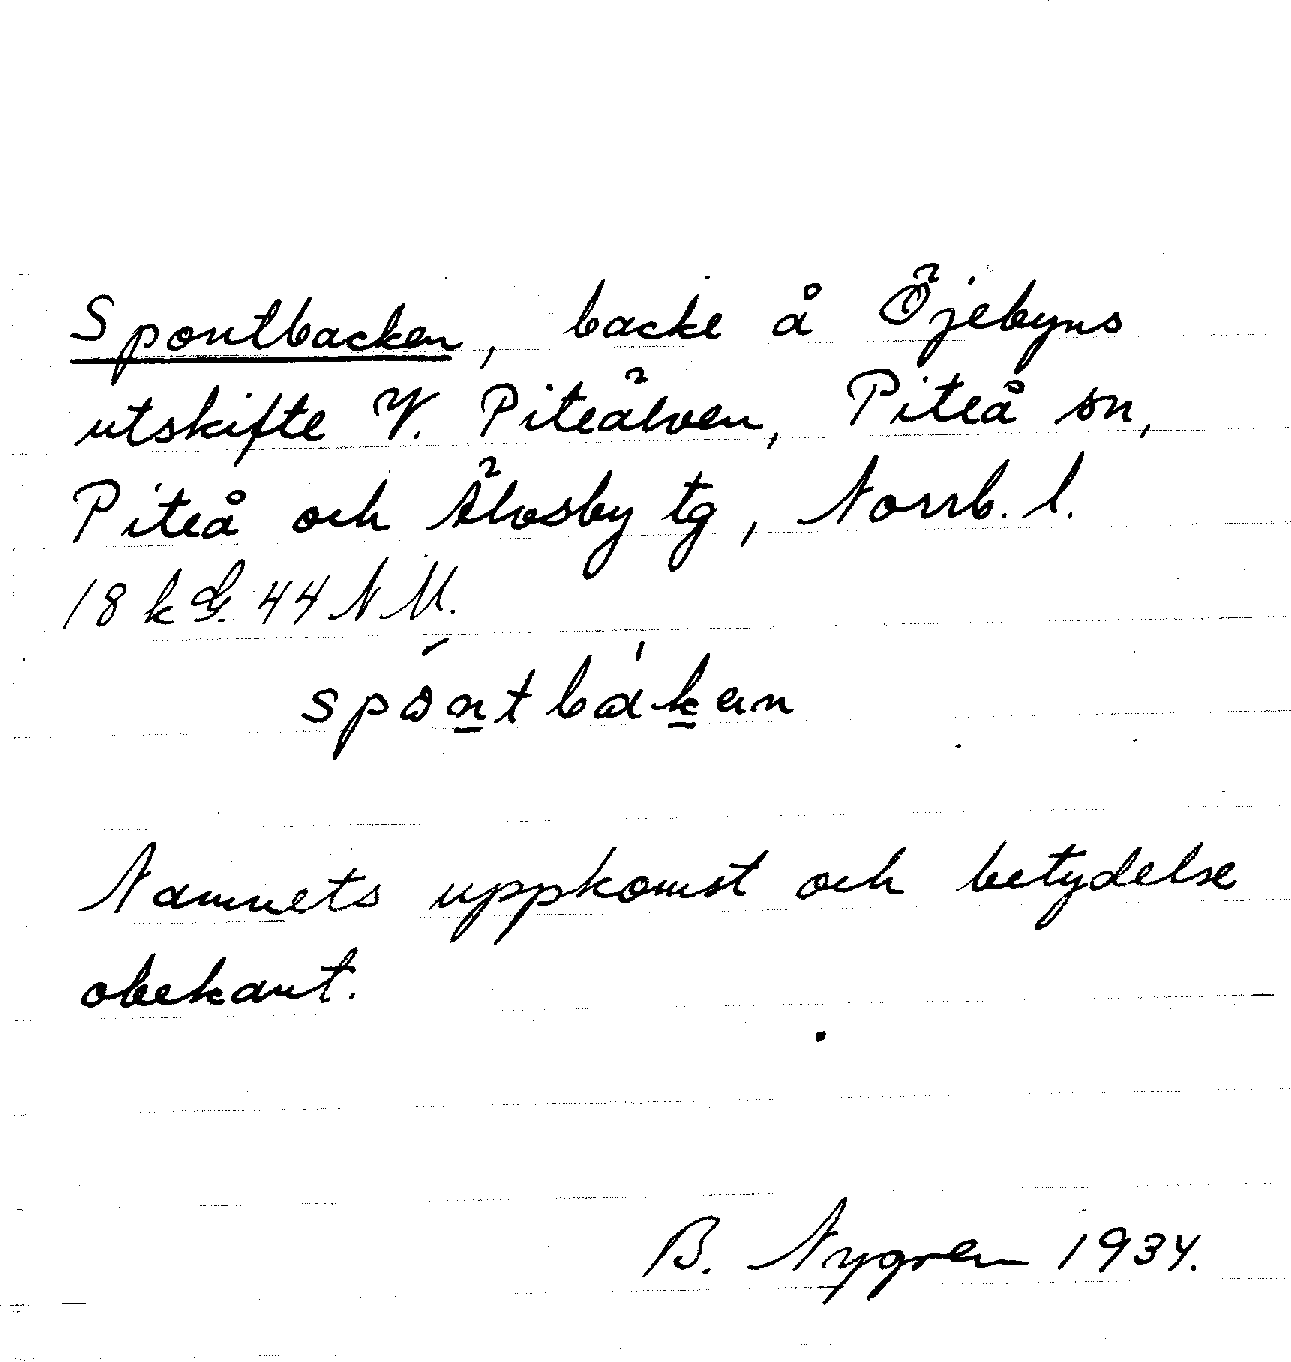 Spontbacken, backe å Öjebyns
utskifte V. Piteälven, Piteå sn,
Piteå och Älvsby tg, Norrb. l.
18 k G. 44 N M.
spòntbákan
Namnets uppkomst och betydelse
obekant.
B. Nygren 1934.